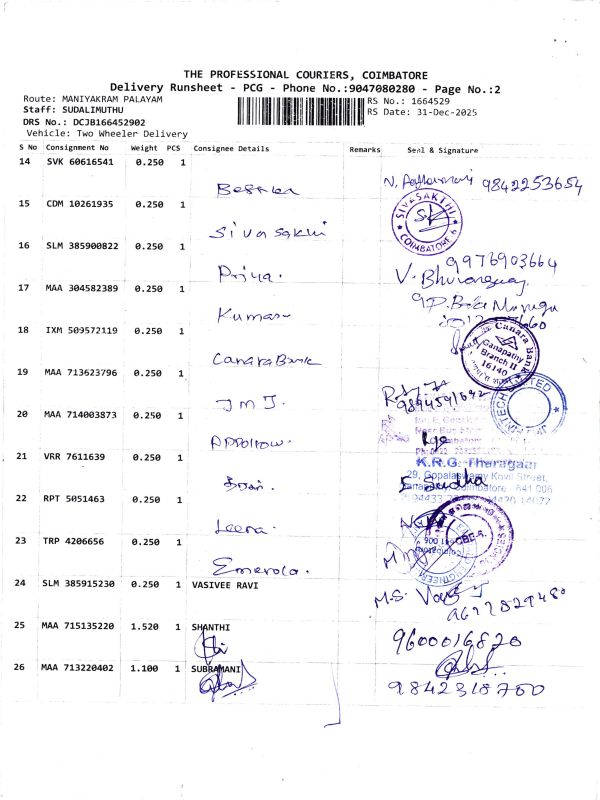 THE PROFESSIONAL COURIERS, COIMBATORE
Delivery Runsheet - PCG - Phone No.:9047080280 - Page No.:2
Route: MANIYAKRAM PALAYAM
Staff: SUDALIMUTHU
DRS No.: DCJB166452902
Vehicle: Two Wheeler Delivery
RS No.: 1664529
RS Date: 31-Dec-2025
S No Consignment No Weight PCS Consignee Details Remarks Seal & Signature
14 SVK 60616541 0.250 1
9842253654
15 CDM 10261935 0.250 1
Sivasakhi
SIVASAKTHI
COIMBATORE
16 SLM 385900822 0.250 1
Priya.
9976903664
17 MAA 304582389 0.250 1
Kumar
V.
18 IXM 509572119 0.250 1
Canara Bank
Canara Bank
Ganapathy
Branch II
16140
19 MAA 713623796 0.250 1
JMJ.
9894591642
LIMITED
20 MAA 714003873 0.250 1
21 VRR 7611639 0.250 1
K.R.G. Thangaar
29, Gopalaswamy Kovil Street,
Coimbatore - 641 006
22 RPT 5051463 0.250 1
Leera.
23 TRP 4206656 0.250 1
24 SLM 385915230 0.250 1 VASIVEE RAVI
M.S.
25 MAA 715135220 1.520 1 SHANTHI
9600016820
26 MAA 713220402 1.100 1 SUBRAMANI
9842318700